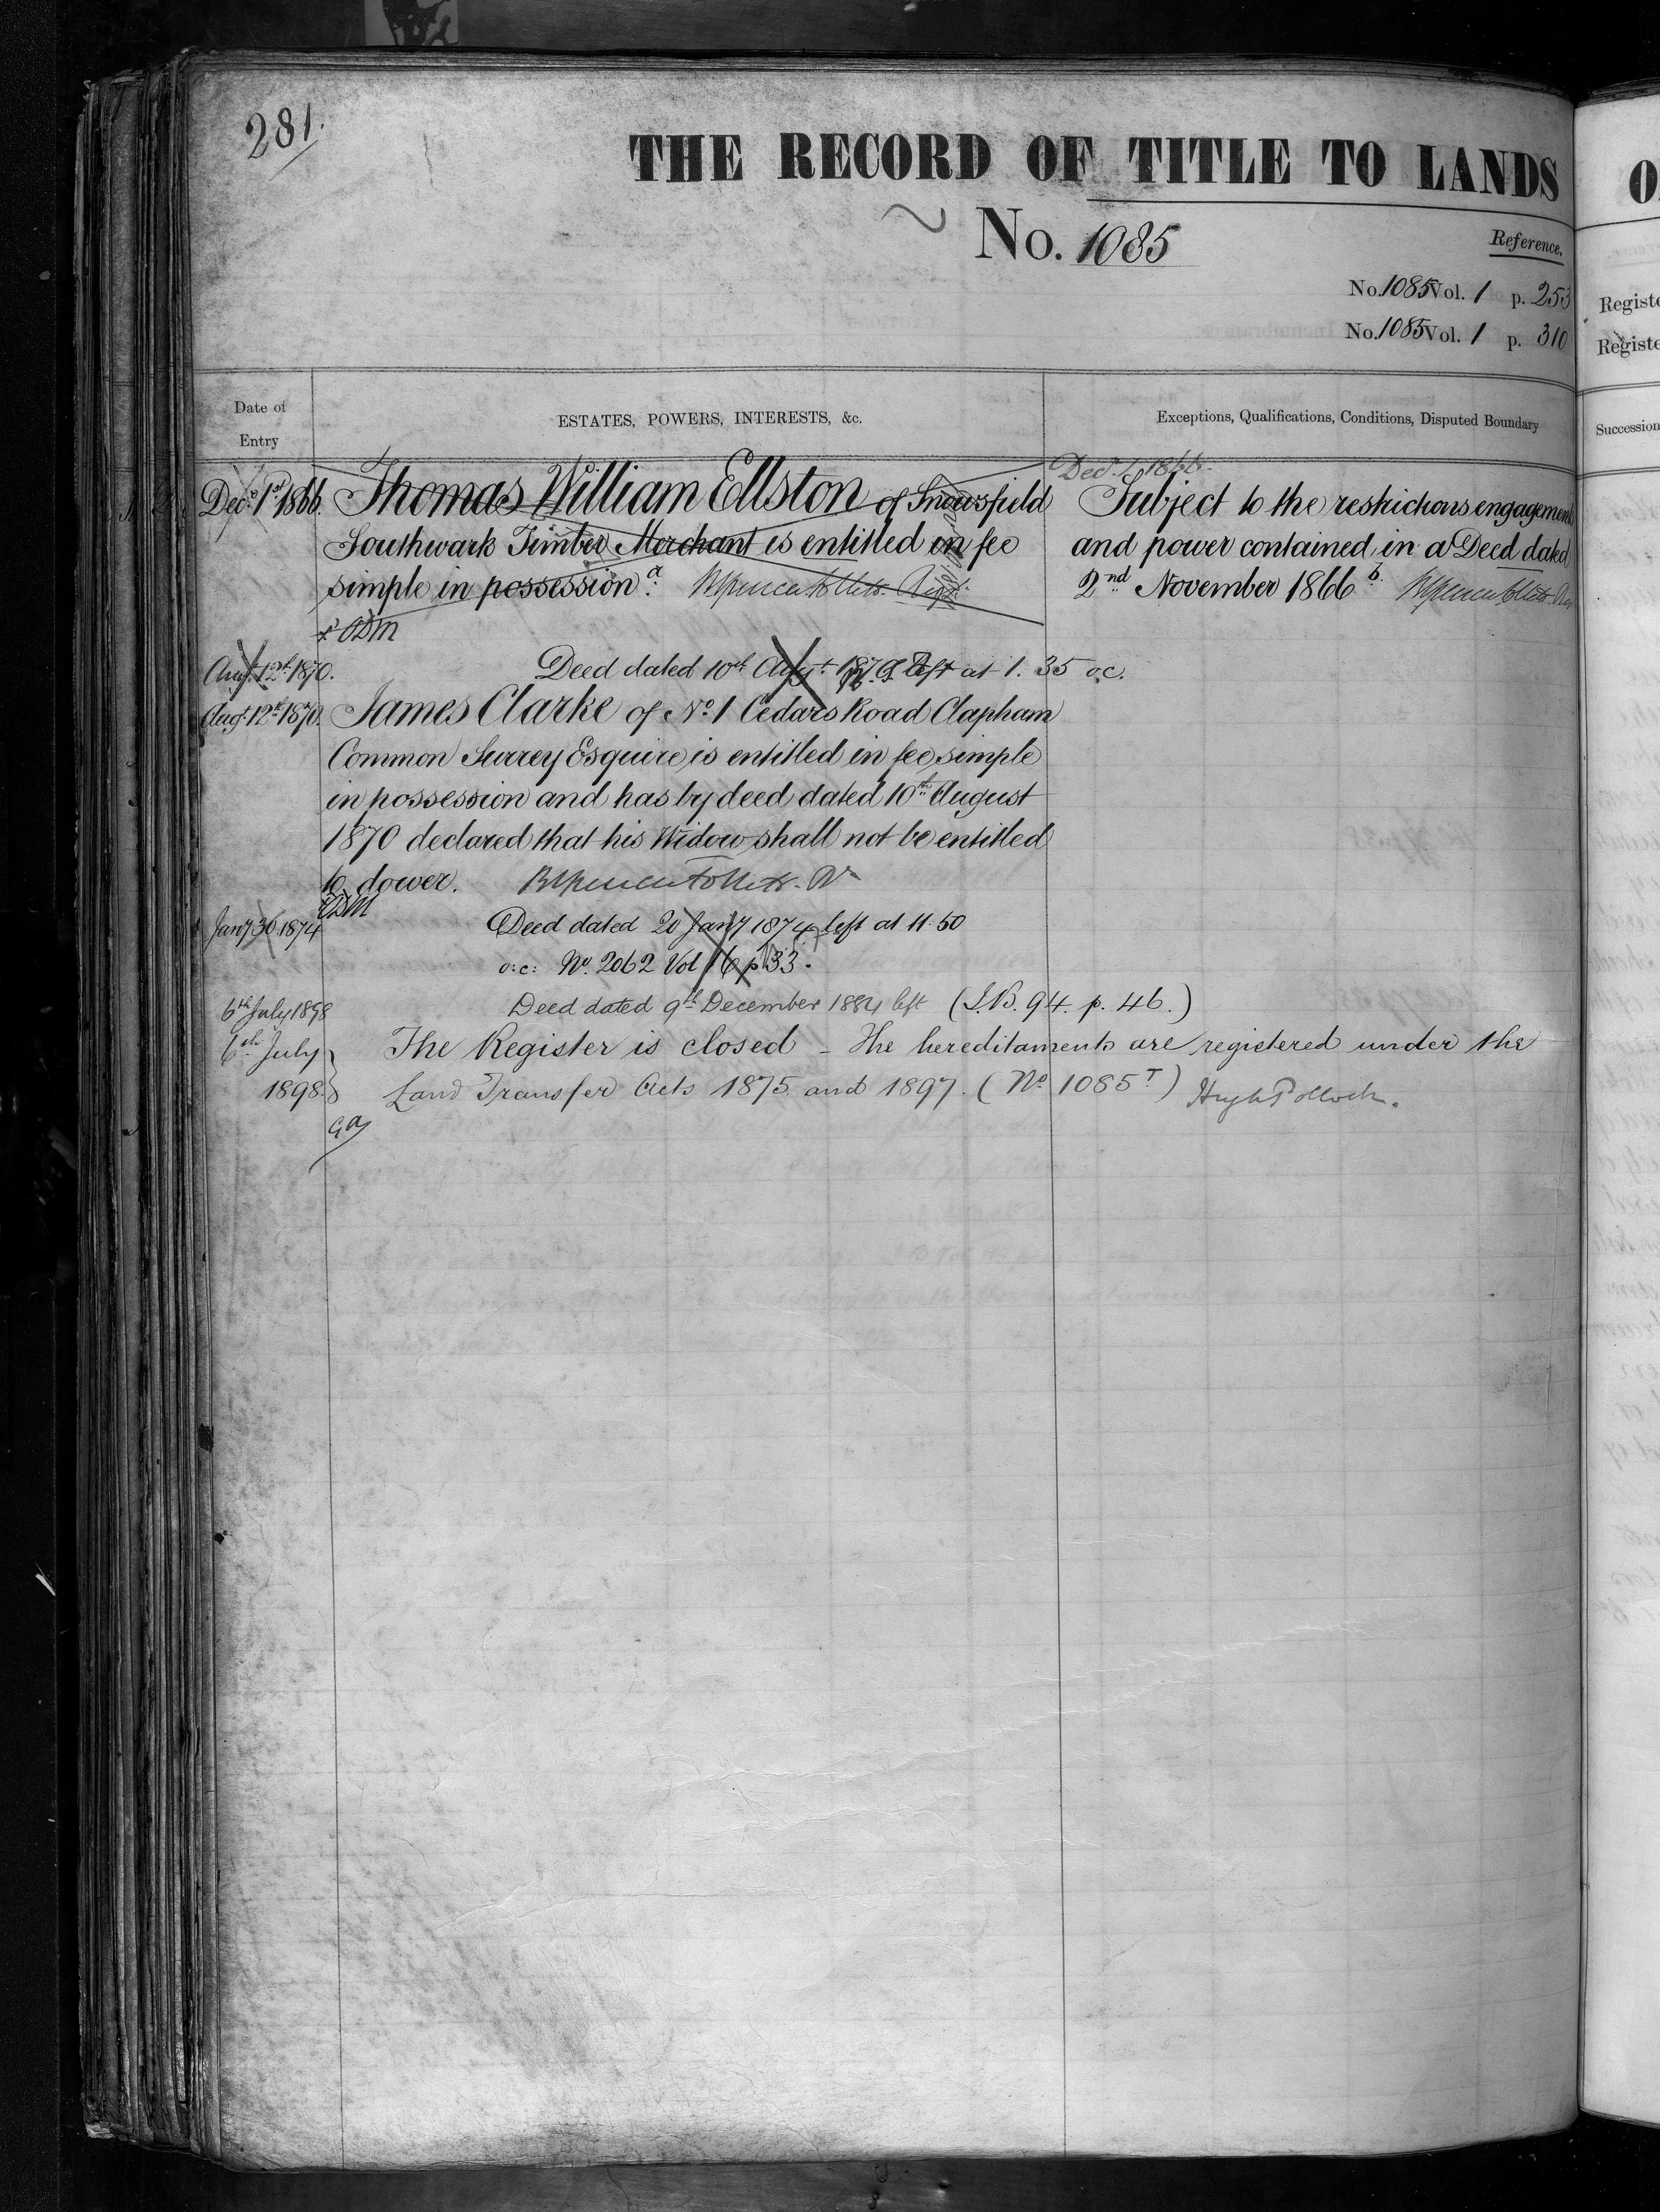 281.
THE RECORD OF TITLE TO LANDS
No. 1085
Reference.
No. 1085 Vol. 1 p. 253
No. 1085 Vol. 1 p. 310
Date of
Entry
ESTATES, POWERS, INTERESTS, &c.
Exceptions, Qualifications, Conditions, Disputed Boundary
Dec. 1st 1866. Thomas William Ellston of Snowsfield
Southwark Timber Merchant is entitled in fee
simple in possession. a
Dec. 1, 1866.
Subject to the restrictions engagement
and power contained in a Deed dated
2nd November 1866 b.
Augt. 12th 1870. Deed dated 10th Augt. 1870 left at 1. 35 o.c.
Augt. 12th 1870. James Clarke of No. 1 Cedars Road Clapham
Common Surrey Esquire is entitled in fee simple
in possession and has by deed dated 10th August
1870 declared that his Widow shall not be entitled
to dower.
Jany 30 1874 Deed dated 20 Jany 1874 left at 11.50
o:c: No. 2062 Vol 16 p 33.
6th July 1898 Deed dated 9th December 1884 left (I.B. 94. p. 46.)
6th July 1898. The Register is closed - The hereditaments are registered under the
Land Transfer Acts 1875 and 1897. (No. 1085 T) Hugh Pollock.
O
Registe
Registe
Succession